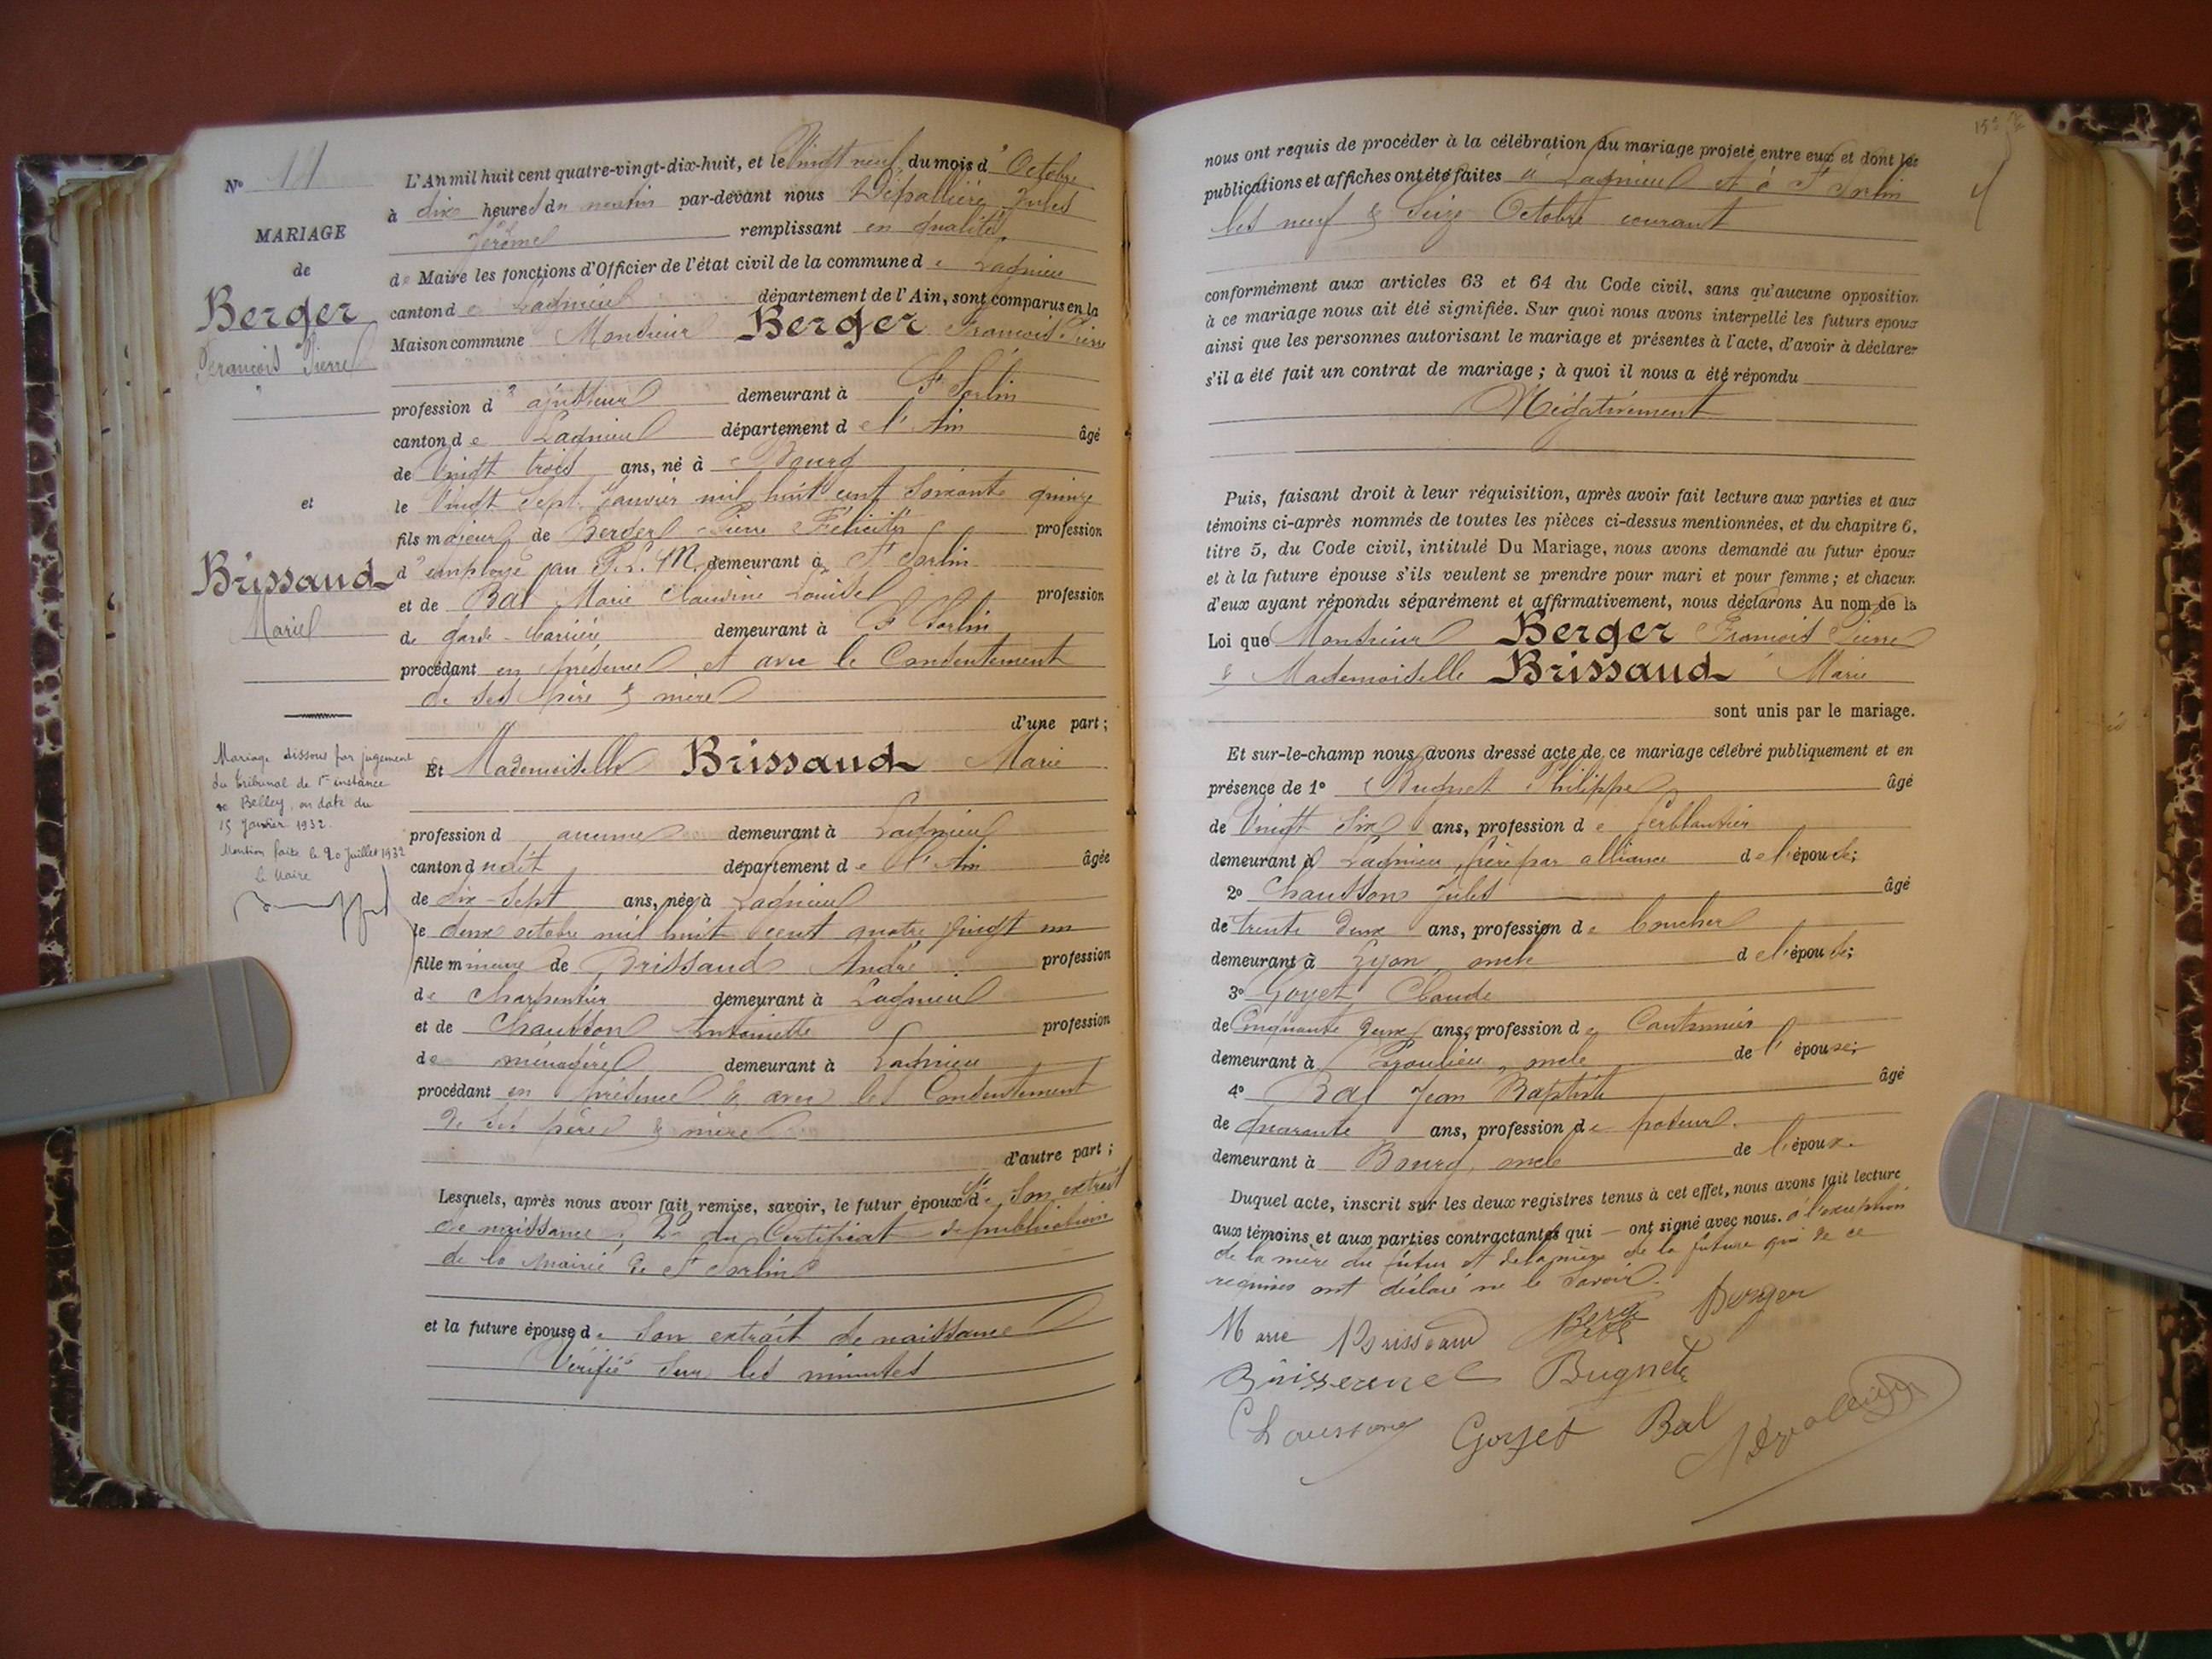 N° 11
MARIAGE
de
Berger
François Pierre
et
Brissaud
Marie
Mariage dissous par jugement
du tribunal de 1re instance
de Belley, en date du
15 Janvier 1932.
Mention faite le 20 Juillet 1932
le Maire
L'An mil huit cent quatre-vingt-dix-huit, et le Vingt neuf du mois d'Octobre
à dix heures du matin par-devant nous Dépallière Jules
Jérôme remplissant en qualité
de Maire les fonctions d'Officier de l'état civil de la commune de Lagnieu
canton de Lagnieu département de l'Ain, sont comparus en la
Maison commune Monsieur Berger François Pierre
profession d'ajusteur demeurant à St Sorlin
canton de Lagnieu département de l'Ain âgé
de Vingt trois ans, né à Bourg
le Vingt Sept Janvier mil huit cent soixante quinze
fils majeur de Berger Pierre Félicité profession
d'employé au P.L.M. demeurant à St Sorlin
et de Bal Marie Claudine Louise profession
de garde-barrière demeurant à St Sorlin
procédant en présence et avec le Consentement
de ses père & mère
d'une part;
Et Mademoiselle Brissaud Marie
profession d aucune demeurant à Lagnieu
canton dudit département de l'Ain âgée
de dix-sept ans, née à Lagnieu
le deux octobre mil huit cent quatre vingt un
fille mineure de Brissaud André profession
de Charpentier demeurant à Lagnieu
et de Chausson Antoinette profession
de ménagère demeurant à Lagnieu
procédant en présence & avec le Consentement
de ses père & mère
d'autre part;
Lesquels, après nous avoir fait remise, savoir, le futur époux de 1° Son extrait
de naissance; 2° du Certificat de publication
de la Mairie de St Sorlin
et la future épouse de Son extrait de naissance
Vérifié sur les minutes
nous ont requis de procéder à la célébration du mariage projeté entre eux et dont les
publications et affiches ont été faites à Lagnieu et à St Sorlin
les neuf & Seize Octobre courant
conformément aux articles 63 et 64 du Code civil, sans qu'aucune opposition
à ce mariage nous ait été signifiée. Sur quoi nous avons interpellé les futurs époux
ainsi que les personnes autorisant le mariage et présentes à l'acte, d'avoir à déclarer
s'il a été fait un contrat de mariage; à quoi il nous a été répondu
Négativement
Puis, faisant droit à leur réquisition, après avoir fait lecture aux parties et aux
témoins ci-après nommés de toutes les pièces ci-dessus mentionnées, et du chapitre 6,
titre 5, du Code civil, intitulé Du Mariage, nous avons demandé au futur époux
et à la future épouse s'ils veulent se prendre pour mari et pour femme; et chacun
d'eux ayant répondu séparément et affirmativement, nous déclarons Au nom de la
Loi que Monsieur Berger François Pierre
& Mademoiselle Brissaud Marie
sont unis par le mariage.
Et sur-le-champ nous avons dressé acte de ce mariage célébré publiquement et en
présence de 1° Bugnet Philippe âgé
de Vingt Six ans, profession de ferblantier
demeurant à Lagnieu, frère par alliance de l'épouse;
2° Chausson Jules âgé
de trente deux ans, profession de boucher
demeurant à Lyon, oncle de l'épouse;
3° Goyet Claude
de Cinquante deux ans, profession de Cantonnier
demeurant à Proulieu, oncle de l'épouse;
4° Bal Jean Baptiste âgé
de quarante ans, profession de poseur
demeurant à Bourg, oncle de l'époux.
Duquel acte, inscrit sur les deux registres tenus à cet effet, nous avons fait lecture
aux témoins et aux parties contractantes qui — ont signé avec nous. à l'exception
de la mère du futur et de la mère de la future qui de ce
requises ont déclaré ne le savoir.
Marie Brissaud Berger Berger
Bugnet
Chausson Goyet Bal